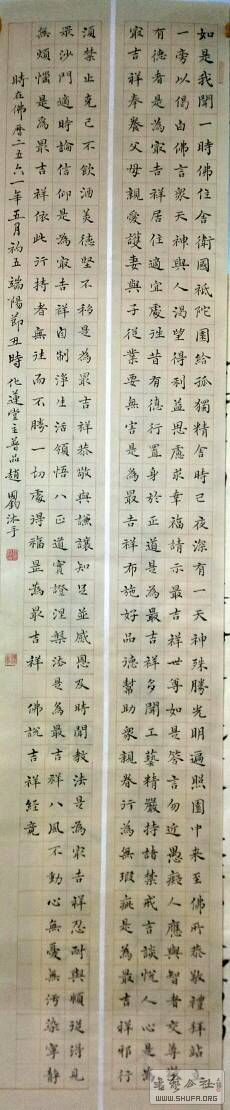 如是我聞一時佛住舍衛國祇陀園給孤獨精舍時已夜深有一天神殊勝光明遍照園中来至佛所恭敬禮拜站立
一旁以偈白佛言衆天神與人渴望得利益思慮求幸福請示最吉祥世尊如是答言勿近愚癡人應與智者交尊敬
有德者是為冣吉祥居住適宜處往昔有德行置身於正道是為最吉祥多聞工藝精嚴持諸禁戒言談悅人心是為
冣吉祥奉養父母親愛護妻與子從業要無害是為最吉祥布施好品德幫助衆親眷行為無瑕疵是為最吉祥邪行
須禁止克己不飲酒美德堅不移是為最吉祥恭敬與謙讓知足並感恩及時聞教法是為冣吉祥忍耐與順從得見
衆沙門適時論信仰是為冣吉祥自制淨生活領悟八正道實證涅槃法是為最吉祥八風不動心無憂無污染寧靜
無煩惱是為最吉祥依此行持者無往而不勝一切處得福是為最吉祥 佛說吉祥經竟
時在佛曆二五六一年五月初五端陽節丑時化蓮堂主普品趙國鈞沐手
書藝公社
WWW.SHUFA.ORG